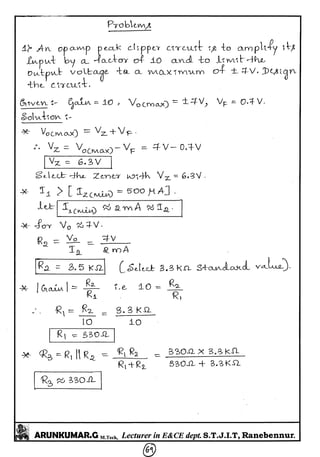 Problems
1) An opamp peak clipper circuit is to amplify its
input by a factor of 10 and to limit the
output voltage to a maximum of ± 7V. Design
the circuit.
Given :- Gain = 10 , Vo(max) = ± 7V, VF = 0.7V.
Solution :-
* Vo(max) = Vz + VF.
∴ Vz = Vo(max) - VF = 7V - 0.7V
Vz = 6.3V
Select the Zener with Vz = 6.3V.
* I1 > [ Iz(min) = 500 µA ].
let I1(min) ≈ 2mA ≈ I2.
* for Vo ≈ 7V.
R2 = Vo / I2 = 7V / 2mA
R2 = 3.5 KΩ (Select 3.3KΩ standard value).
* |Gain| = R2 / R1 i.e 10 = R2 / R1
∴ R1 = R2 / 10 = 3.3KΩ / 10
R1 = 330Ω
* R3 = R1 || R2 = R1 R2 / R1+R2 = 330Ω x 3.3KΩ / 330Ω + 3.3KΩ
R3 ≈ 330Ω.
ARUNKUMAR.G M.Tech, Lecturer in E&CE dept. S.T.J.I.T, Ranebennur.
69